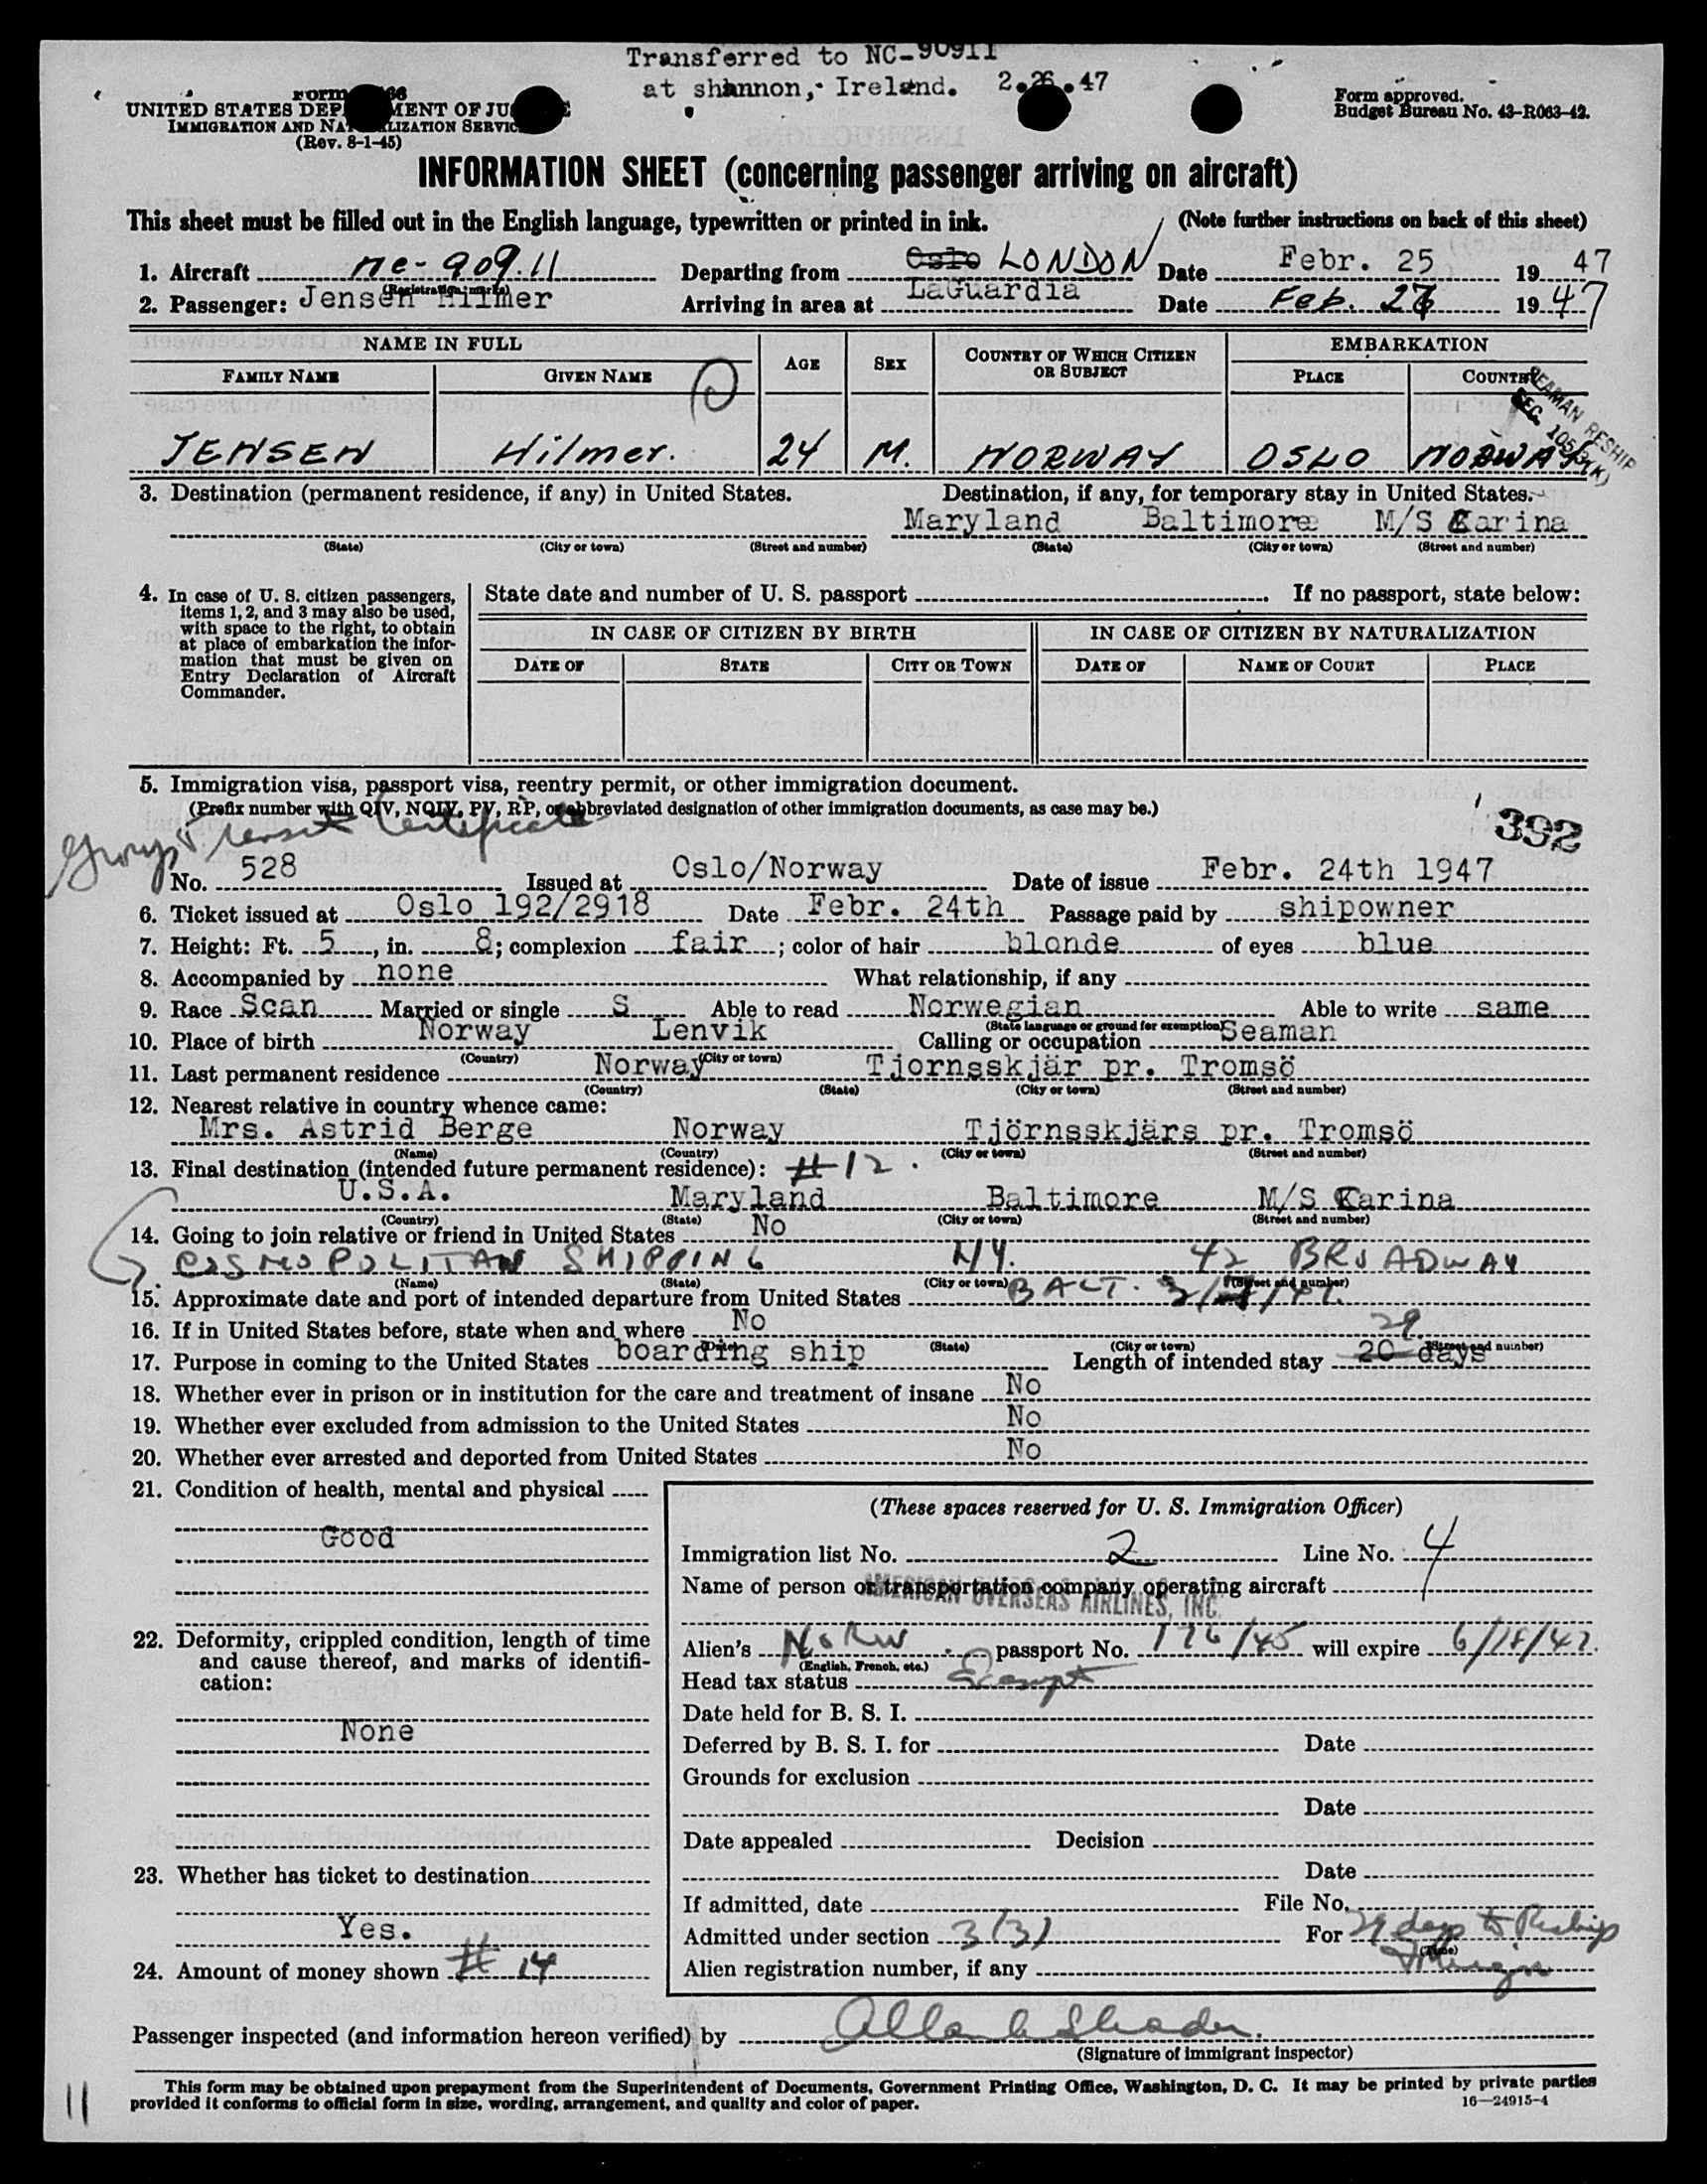 Transferred to NC-90911
at shannon, Ireland. 2.26.47
Form
UNITED STATES DEP MENT OF JU
IMMIGRATION AND NA LIZATION SERVIC
(Rev. 8-1-45)
Form approved.
Budget Bureau No. 43-R063-42.
INFORMATION SHEET (concerning passenger arriving on aircraft)
This sheet must be filled out in the English language, typewritten or printed in ink. (Note further instructions on back of this sheet)
1. Aircraft nc-909.11 Departing from Oslo LONDON Date Febr. 25 1947
(Registration marks)
2. Passenger: Jensen Hilmer Arriving in area at LaGuardia Date Feb. 1947
NAME IN FULL AGE SEX COUNTRY OF WHICH CITIZEN OR SUBJECT EMBARKATION
FAMILY NAME GIVEN NAME PLACE COUNTRY
SEAMAN RESHIP
SEC. 105.3(K)
JENSEN Hilmer. 24 M. NORWAY OSLO NORWAY
3. Destination (permanent residence, if any) in United States. Destination, if any, for temporary stay in United States.
Maryland Baltimore M/S Karina
(State) (City or town) (Street and number) (State) (City or town) (Street and number)
4. In case of U. S. citizen passengers, items 1, 2, and 3 may also be used, with space to the right, to obtain at place of embarkation the information that must be given on Entry Declaration of Aircraft Commander.
State date and number of U. S. passport If no passport, state below:
IN CASE OF CITIZEN BY BIRTH IN CASE OF CITIZEN BY NATURALIZATION
DATE OF STATE CITY OR TOWN DATE OF NAME OF COURT PLACE
5. Immigration visa, passport visa, reentry permit, or other immigration document.
(Prefix number with QIV, NQIV, PV, RP, or abbreviated designation of other immigration documents, as case may be.)
Transit Certificate
392
No. 528 Issued at Oslo/Norway Date of issue Febr. 24th 1947
6. Ticket issued at Oslo 192/2918 Date Febr. 24th Passage paid by shipowner
7. Height: Ft. 5, in. 8; complexion fair; color of hair blonde of eyes blue
8. Accompanied by none What relationship, if any
9. Race Scan Married or single S Able to read Norwegian Able to write same
(State language or ground for exemption)
10. Place of birth Norway Lenvik Calling or occupation Seaman
(Country) (City or town)
11. Last permanent residence Norway Tjornsskjär pr. Tromsö
(Country) (State) (City or town) (Street and number)
12. Nearest relative in country whence came:
Mrs. Astrid Berge Norway Tjörnsskjärs pr. Tromsö
(Name) (Country) (City or town) (Street and number)
13. Final destination (intended future permanent residence): #12.
U.S.A. Maryland Baltimore M/S Karina
(Country) (State) (City or town) (Street and number)
14. Going to join relative or friend in United States No
COSMOPOLITAN SHIPPING N.Y. 42 BROADWAY
(Name) (State) (City or town) (Street and number)
15. Approximate date and port of intended departure from United States BALT.
16. If in United States before, state when and where No
(Date) (State) (City or town) (Street and number)
17. Purpose in coming to the United States boarding ship Length of intended stay 29 20 days
18. Whether ever in prison or in institution for the care and treatment of insane No
19. Whether ever excluded from admission to the United States No
20. Whether ever arrested and deported from United States No
21. Condition of health, mental and physical
Good
22. Deformity, crippled condition, length of time and cause thereof, and marks of identification:
None
23. Whether has ticket to destination
Yes.
24. Amount of money shown # 14
(These spaces reserved for U. S. Immigration Officer)
Immigration list No. 2 Line No. 4
Name of person or transportation company operating aircraft
AMERICAN OVERSEAS AIRLINES, INC.
Alien's Norw. passport No. 176/45 will expire 6/18/47.
(English, French, etc.)
Head tax status Exempt
Date held for B. S. I.
Deferred by B. S. I. for Date
Grounds for exclusion
Date
Date appealed Decision
Date
If admitted, date File No.
Admitted under section 3(3) For 29 days to Reship
(Time)
Foreign
Alien registration number, if any
Passenger inspected (and information hereon verified) by
(Signature of immigrant inspector)
This form may be obtained upon prepayment from the Superintendent of Documents, Government Printing Office, Washington, D. C. It may be printed by private parties
provided it conforms to official form in size, wording, arrangement, and quality and color of paper. 16—24915-4
11